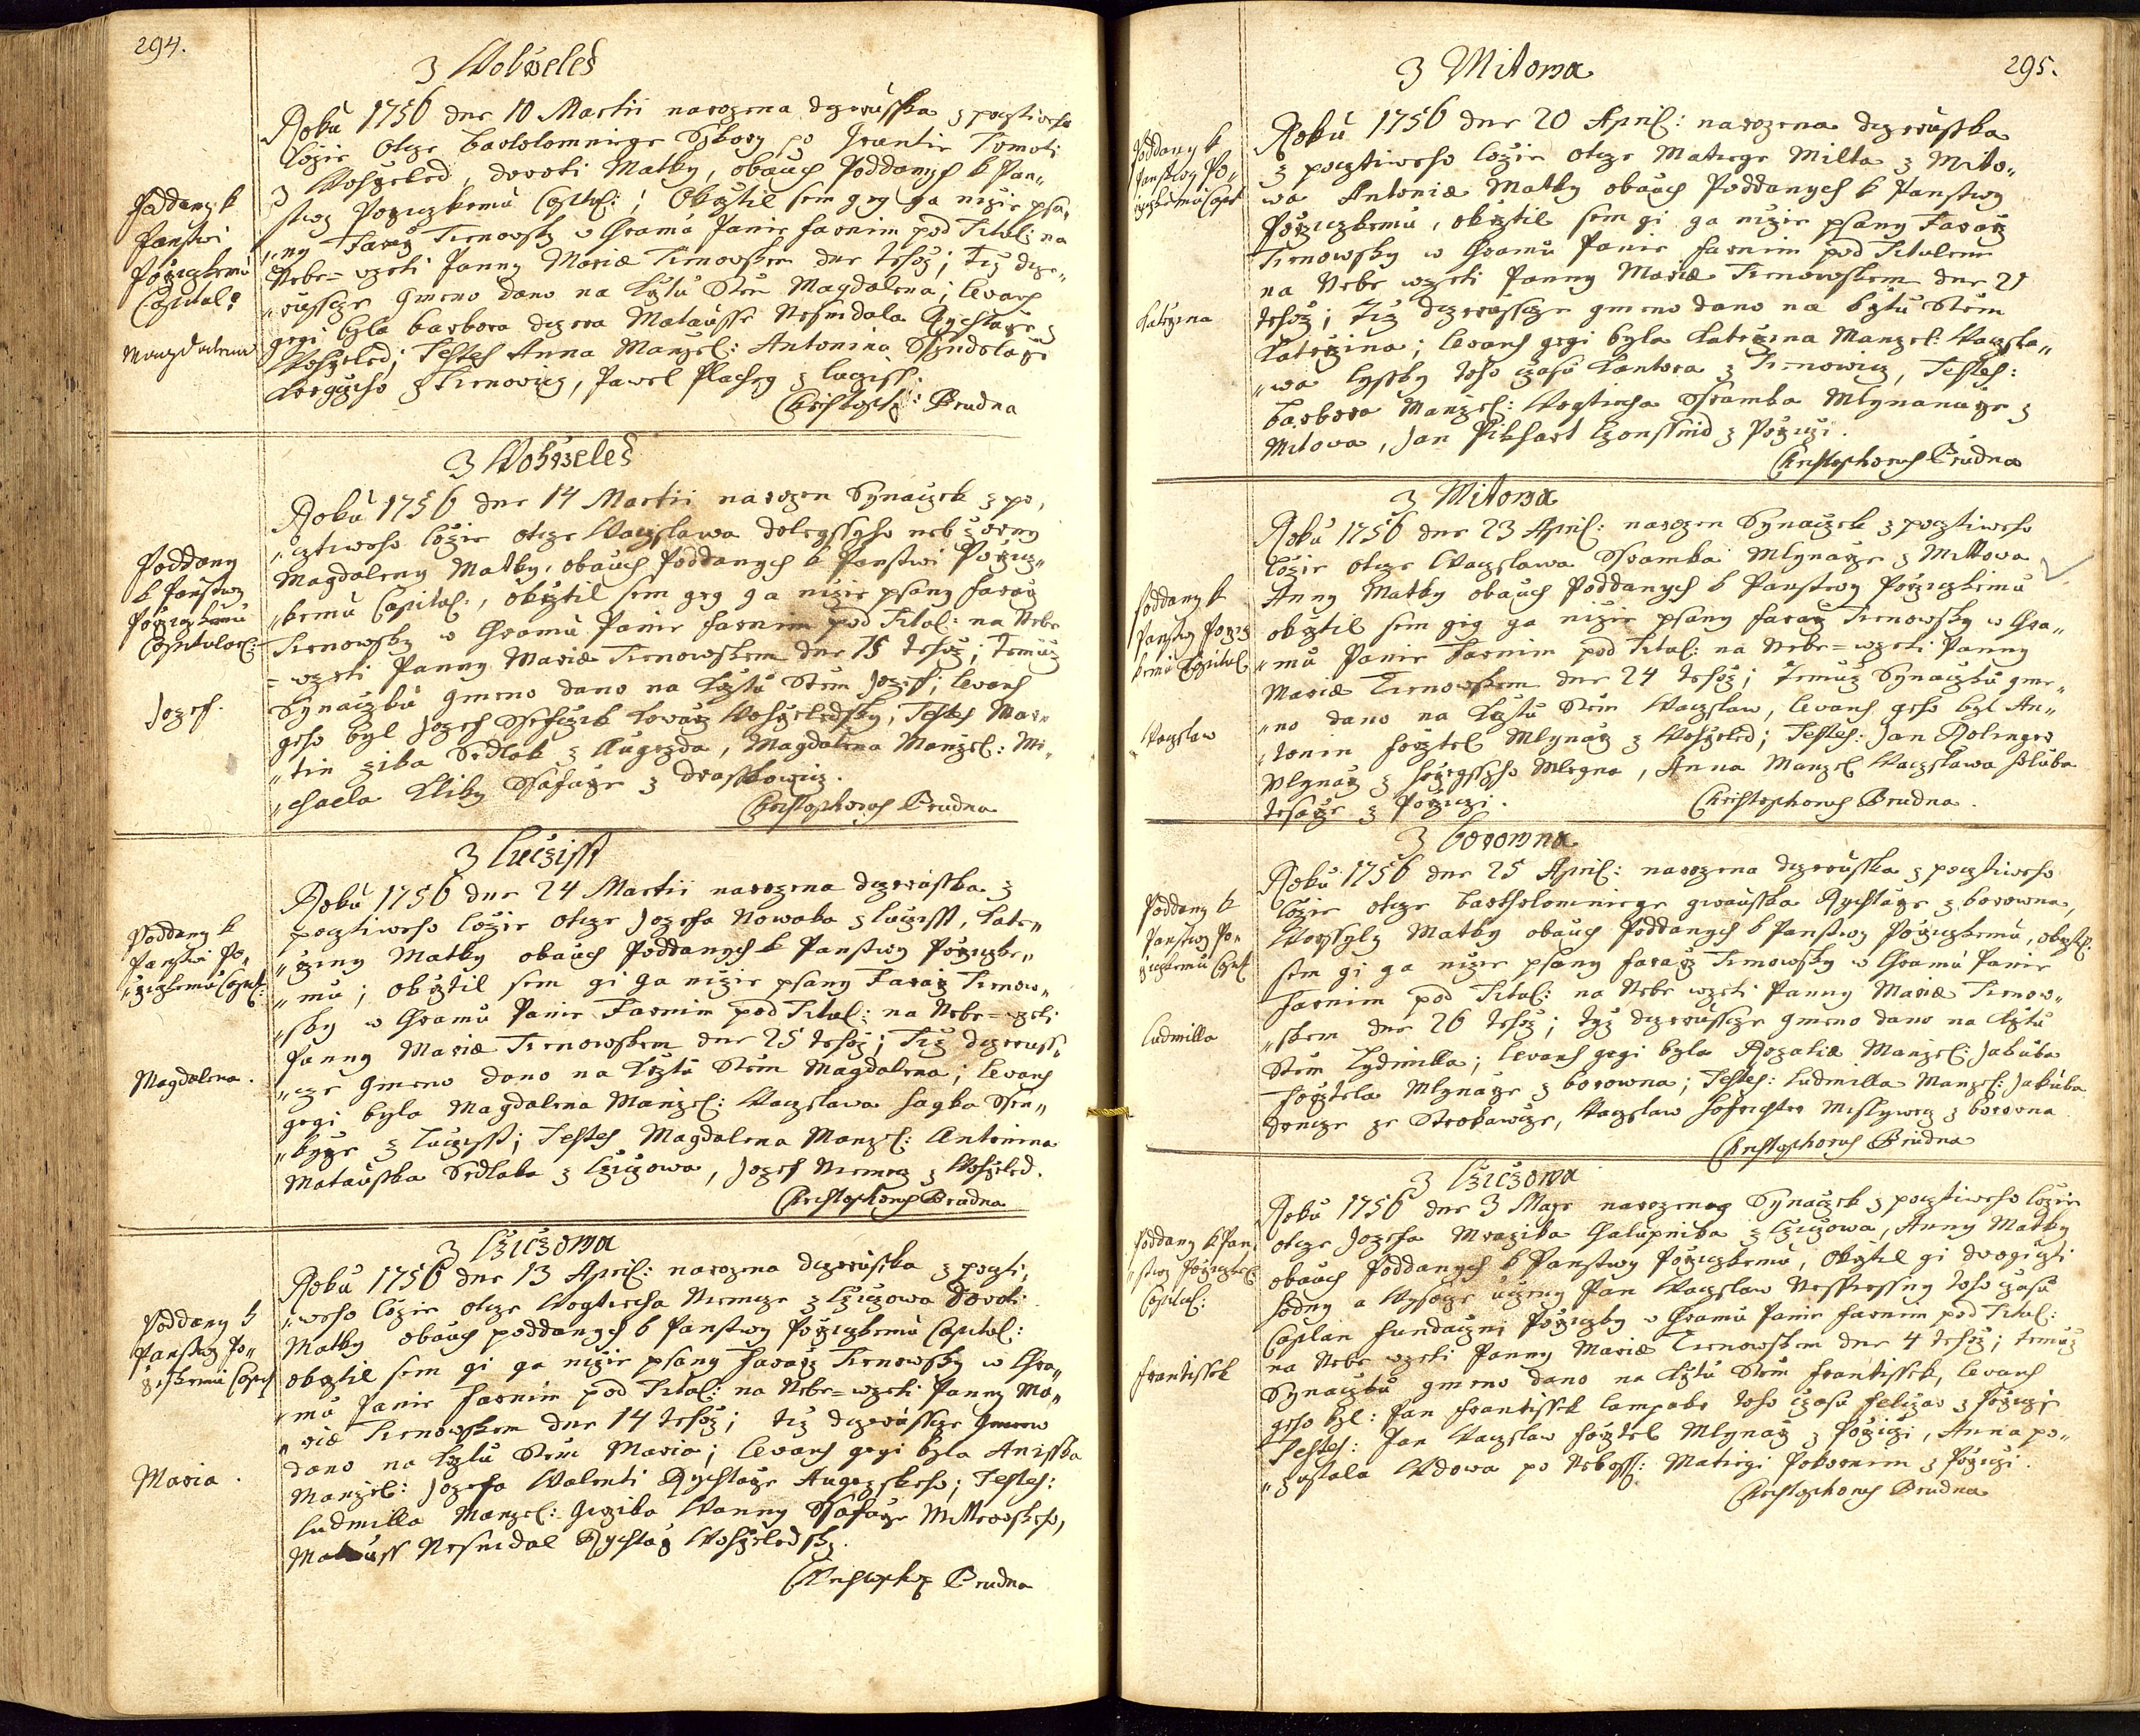 294.
z Wohrzeled
Roku 1756 dne 10 Martii narozena dczeruſſka z pocztiweho
Lozie otcze Bartolomniege Sykory po Gruntie Tomoti
z Wohrzeled, Doroti Matky, obauch Poddanych k Pan„
ſtwy Porziczkemu Capitul: ; Okrztil sem gey ga nizie psa„
„ny Faraz Trnowsky w Chramu Panie Farnim pod Titul: na
Nebe=wzeti Panny Mariæ Trnowskem dne tehoz; Tez dcze„
„ruſſcze Gmeno dano na Krztu Stem Magdalena; Levans
gegi byla Barbora dczera Matauſſe Nesmidala Rychtarze z
Wohrzeled; Testes Anna Manzel: Antonina
z Trnowicz, Pawel Plachey z Lucziſſt:
Christoph: Brudna
Poddany k
Panstwi
Porziczkemu
Capitul:
Magdalena
z Wohrzeled
Roku 1756 dne 14 Martii narozen Synaczek z po„
„cztiweho Lozie otcze Waczslawa dolegſſyho neb
Magdaleny Matky, obauch Poddanych k Panstwi Porzicz„
„kemu Capitul:, okrztil sem gey ga nizie psany Faraz
Trnowsky w Chramu Panie Farnim pod Titul: na Nebe
= wzeti Panny Mariæ Trnowskem dne 15 tehoz; Temuz
Synaczku gmeno dano na Krztu Stem Jozef; Levans
geho byl Jozef Kowarz Wohrzeledsky, Testes Mar„
„tin zika Sedlak z Augezda, Magdalena Manzel: Mi„
„chaela Kliky Sſafarze z Draſſkowicz.
Christophorus Brudna
Poddany
k Panstwy
Porziczkemu
Capitular:
Jozef.
z Lucziſſt
Roku 1756 dne 24 Martii narozena dczeruſſka z
pocztiweho Lozie otcze Jozefa Nowaka z Lucziſſt, Kate„
„rziny Matky obauch Poddanych k Panstwy Porziczke„
„mu; okrztil sem gi ga nizie psany Faraz Trnow„
„sky w Chramu Panie Farnim pod Titul: na Nebe=wzeti
Panny Mariæ Trnowskem dne 25 tehoz; Tez dczeruſſ„
„cze Gmeno dano na Krztu Stem Magdalena; Levans
gegi byla Magdalena Manzel: Waczslawa Hagka Sſen„
„kyrze z Lucziſſt; Testes Magdalena Manzel: Antonina
Matauſſka Sedlaka z Cziczowa, Jozef Niemecz z Wohrzeled.
Christophorus Brudna
Poddany k
Panstwi Po„
„rziczkemu Capit:
Magdalena.
z Cziczowa
Roku 1756 dne 13 April: narozena dczeruſſka z poczti„
„weho Lozie otcze Wogtiecha Niemcze z Cziczowa Doroti
Matky obauch poddanych k Panstwy Porziczkemu Capitul:
okrztil sem gi ga nizie psany Faraz Trnowsky w Chra„
„mu Panie Farnim pod Titul: na Nebe=wzeti Panny Ma„
„riæ Trnowskem dne 14 tehoz; tez dczeruſſcze Gmeno
dano na Krztu Stem Maria; Levans gegi byla Aniſſka
Manzel: Jozefa Walenti Rychtarze Augezskeho; Testes:
Ludmilla Manzel: Girzika Wanny Sſafarze Mittowskeho,
Matauſſ Nesmidal Rychtarz Wohrzeledsky.
Christoph Brudna
Poddany k
Panstwy Po„
rziczkemu Capit
Maria.
295.
z Mitowa
Roku 1756 dne 20 April: narozena dczeruſſka
z pocztiweho Lozie otcze Matiege Milta z Mito„
wa Antoniæ Matky obauch Poddanych k Panstwy
Porziczkemu, okrztil sem gi ga nizie psany Faraz
Trnowsky w Chramu Panie Farnim pod Titulem
na Nebe wzeti Panny Mariæ Trnowskem dne 21
tehoz; Tez dczeruſſcze gmeno dano na krztu Stem
Katerzina; Levans gegi byla Katerzina Manzel: Waczsla„
„wa Lyſſky toho czasu Kantora z Trnowicz, Testes:
Barbora Manzel: Wogtiecha Sſramka Mlynarze z
Mitowa, Jan Pikhart z Porziczi.
Christophorus Brudna
Poddany k
Panstwy Po„
rziczkemu Capit
Katerzina
z Mitowa
Roku 1756 dne 23 April: narozen Synaczek z pocztiweho
Lozie otcze Waczslawa Sſramka Mlynarze z Mittowa
Anny Matky obauch Poddanych k Panstwy Porziczkemu
okrztil sem gey ga nizie psany Faraz Trnowsky w Chra„
„mu Panie Farnim pod Titul: na Nebe=wzeti Panny
Mariæ Trnowskem dne 24 tehoz; Temuz Synaczku gme„
„no dano na Krztu Stem Waczslaw, Levans geho byl An„
„tonin Forztel Mlynarz z Wohrzeled; Testes: Jan Rolinger
Mlynarz z Horzegſſyho Mlegna, Anna Manzel Waczslawa Holuba
Tesarze z Porziczi.
Christophorus Brudna.
Poddany k
Panstwy Porzicz
kemu Capitul
Waczslaw
z Borowna
Roku 1756 dne 25 April: narozena dczeruſſka z pocztiweho
Lozie otcze Bartholomniege Rychtarze z Borowna,
Worſſyly Matky obauch Poddanych k Panstwy Porziczkemu, okrztil
sem gi ga nizie psany Faraz Trnowsky w Chramu Panie
Farnim pod Titul: na Nebe wzeti Panny Mariæ Trnow„
„skem dne 26 tehoz; tez dczeruſſcze gmeno dano na Krztu
Stem Lydmilla; Levans gegi byla Rozaliæ Manzel: Jakuba
Forztela Mlynarze z Borowna; Testes: Ludmilla Manzel: Jakuba
ze Strokawcze, Waczslaw Hofrichter Myſlywecz z Borowna
Christophorus Brudna
Poddany k
Panstwy Po„
rziczkemu Capit
Ludmilla
z Cziczowa
Roku 1756 dne 3 Mage narozeney Synaczek z pocztiweho Lozie
otcze Jozefa Mrazika Chalupnika z Cziczowa, Anny Matky
obauch Poddanych k Panstwy Porziczkemu, Okrztil gi dwogiczti
hodny a Wysocze uczeny Pan Waczslaw toho czasu
Caplan Fundaczni Porziczky w Chramu Panie Farnim pod Titul:
na Nebe wzeti Panny Mariæ Trnowskem dne 4 tehoz; temuz
Synaczku gmeno dano na Krztu Stem Frantiſſek, Levans
geho byl: Pan Frantiſſek Lampake toho czasu Felczar z Porziczi
Testes: Jan Waczslaw Forztel Mlynarz z Porziczi, Anna po„
„zustala Wdowa po Nebozſſ: Matiegi Pokornem z Porziczi.
Christophorus Brudna
Poddany k Pan
„stwy Porziczk:
Capitul:
Frantiſſek